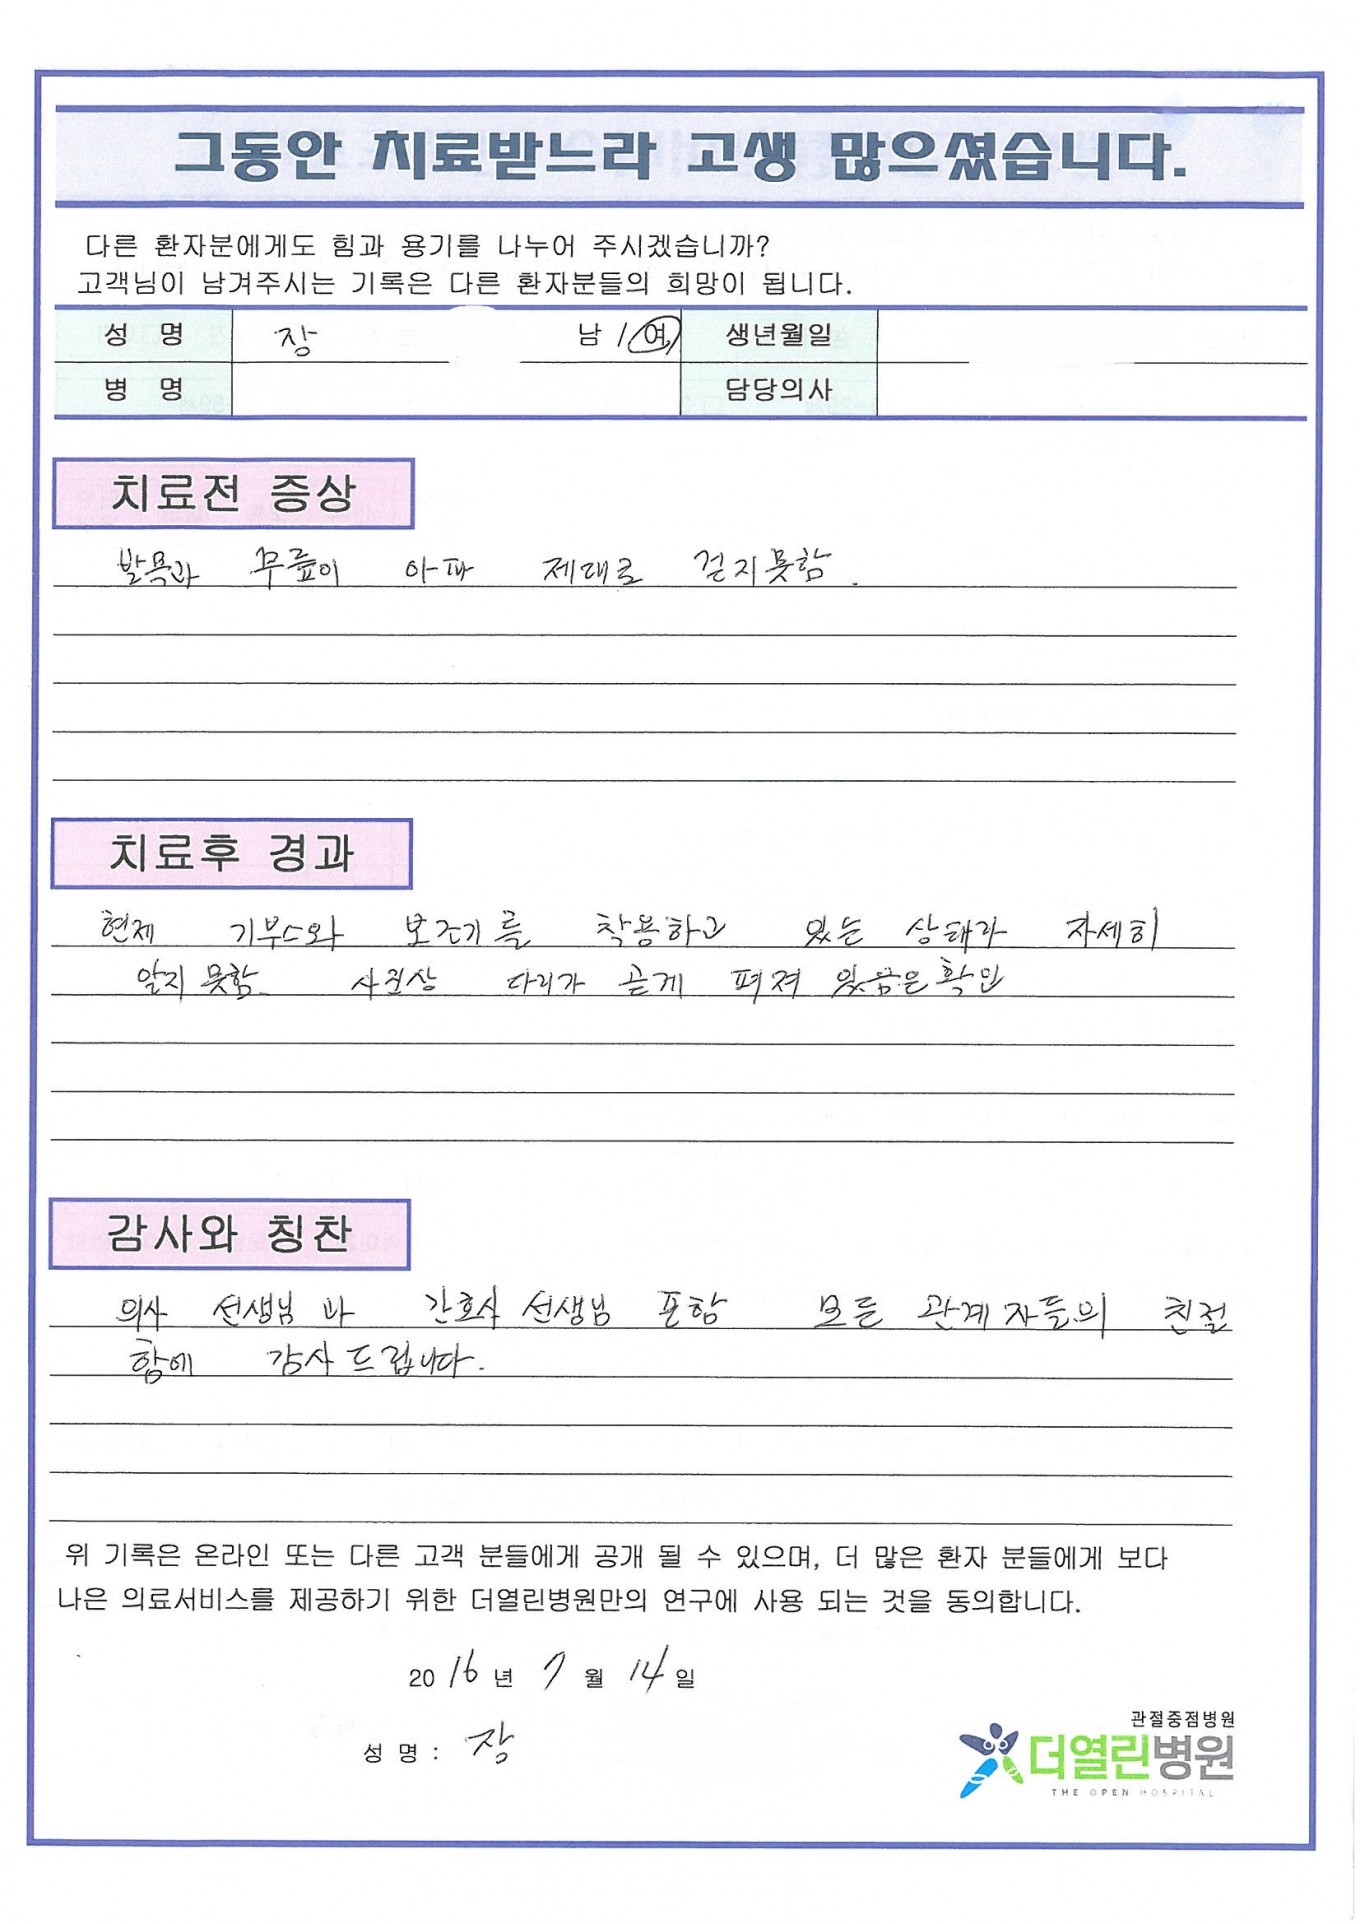 그동안 치료받느라 고생 많으셨습니다.
다른 환자분에게도 힘과 용기를 나누어 주시겠습니까?
고객님이 남겨주시는 기록은 다른 환자분들의 희망이 됩니다.
성 명 장 남 / 여 생년월일
병 명 담당의사
치료전 증상
발목과 무릎이 아파 제대로 걷지못함.
치료후 경과
현제 기부스와 보조기를 착용하고 있는 상태라 자세히
알지 못함. 사진상 다리가 곧게 펴져 있음은 확인
감사와 칭찬
의사 선생님과 간호사 선생님 포함 모든 관계자들의 친절
함에 감사드립니다.
위 기록은 온라인 또는 다른 고객 분들에게 공개 될 수 있으며, 더 많은 환자 분들에게 보다
나은 의료서비스를 제공하기 위한 더열린병원만의 연구에 사용 되는 것을 동의합니다.
2016 년 7 월 14 일
성 명 : 장
관절중점병원
더열린병원
THE OPEN HOSPITAL